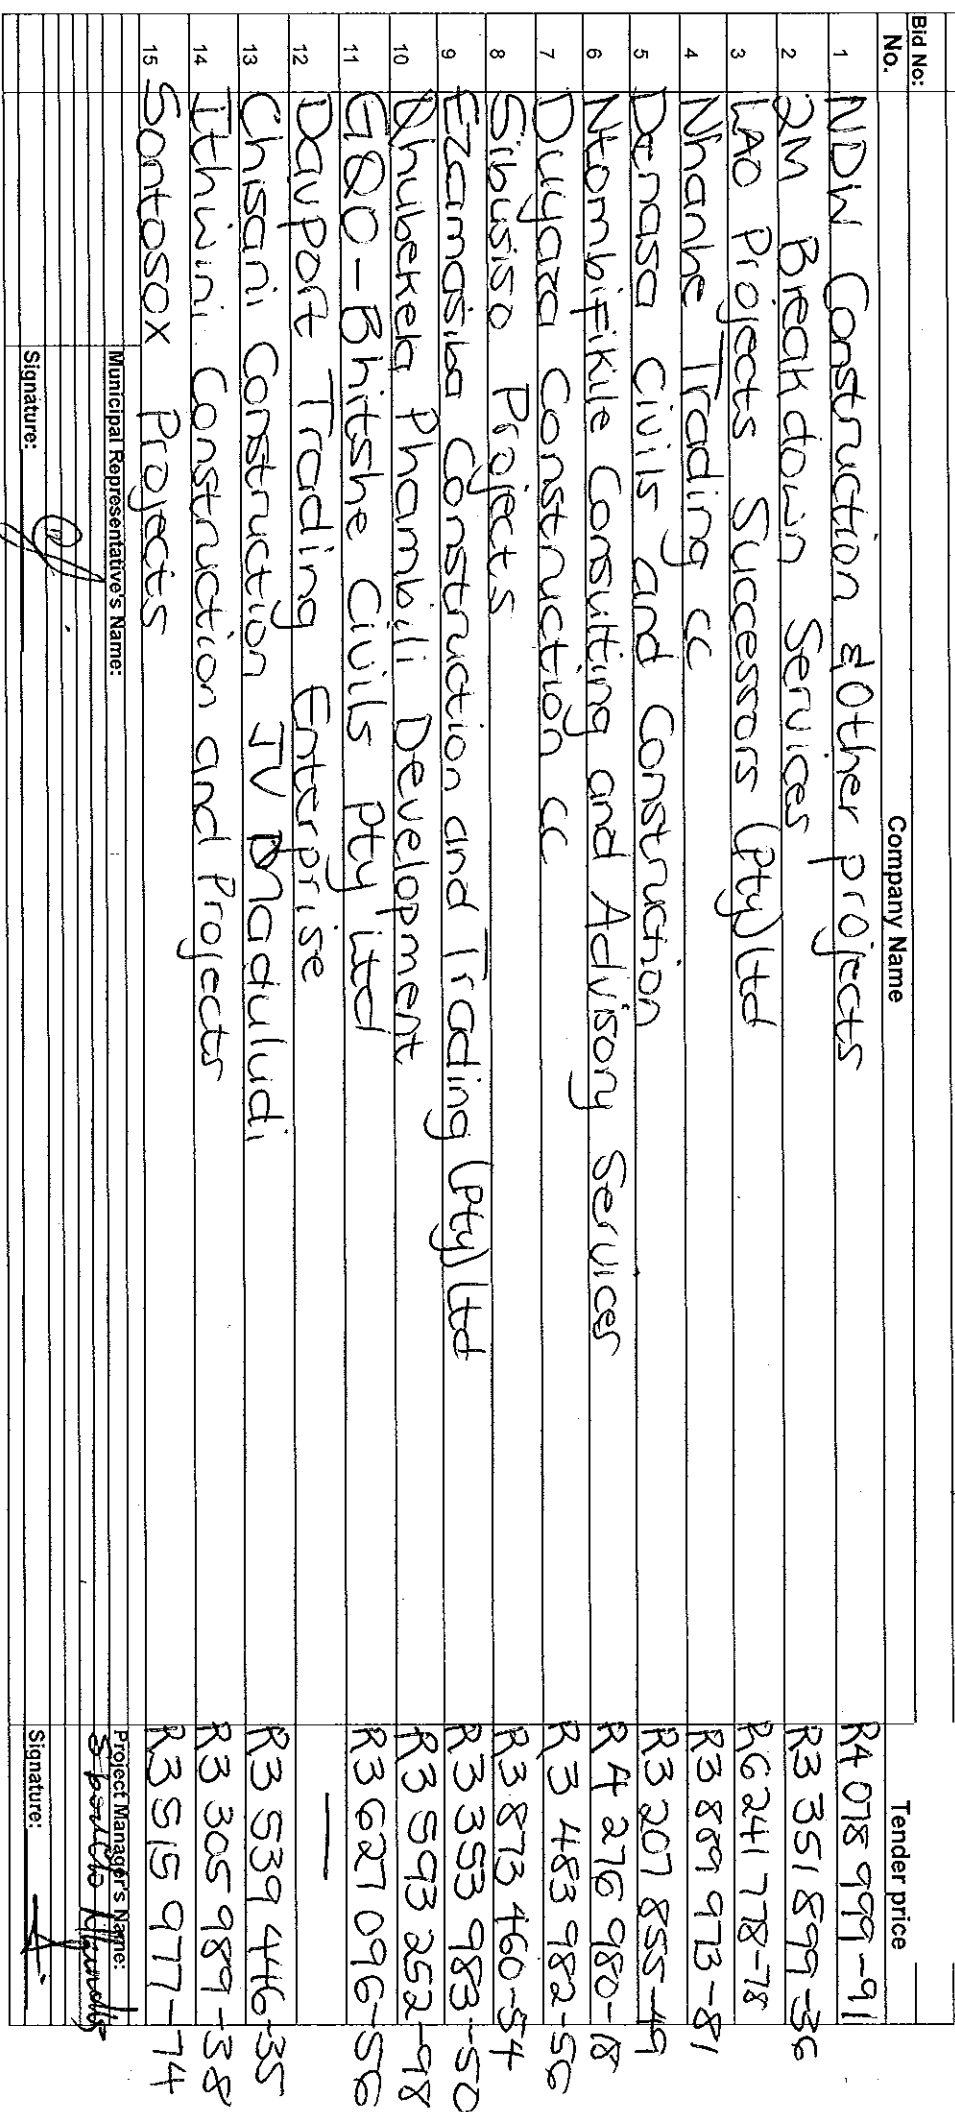 Bid No:
No. Company Name Tender price
1 NDW Construction & Other projects R4 078 999-91
2 2M Breakdown Services R3 351 899-36
3 LAO Projects Successors (Pty) Ltd R6 241 778-78
4 Nhanhe Trading cc R3 889 973-81
5 Denasa Civils and Construction R3 207 855-49
6 Ntombifikile Consulting and Advisory Services R4 276 980-18
7 Duyara Construction cc R3 483 982-56
8 Sibusiso Projects R3 873 460-54
9 Ezamasiba Construction and Trading (Pty) Ltd R3 353 983-50
10 Qhubekela Phambili Development R3 593 252-98
11 GQO-Bhitshe Civils Pty Ltd R3 627 096-56
12 Davport Trading Enterprise —
13 Chisani Construction JV Maduludi R3 539 446-35
14 Ithwini Construction and Projects R3 305 989-38
15 Santosox Projects R3 515 977-74
Municipal Representative's Name: Project Manager's Name:
Signature: Signature: